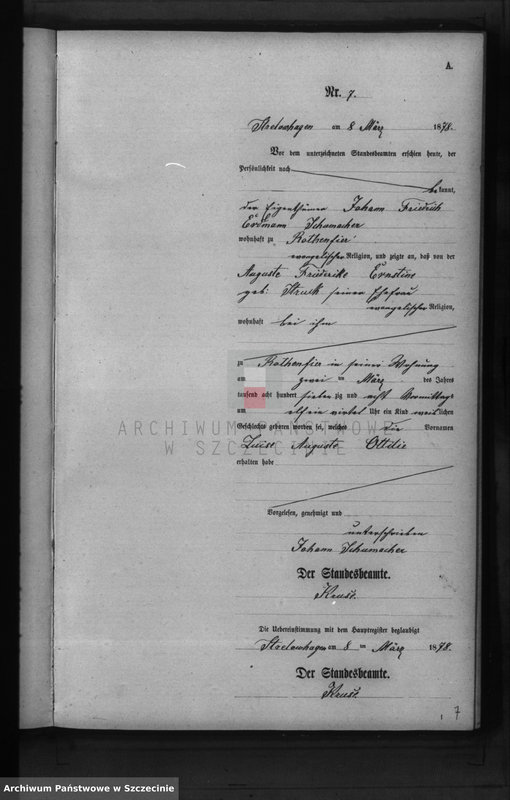 A.
Nr. 7.
Strelowhagen am 8 März 1878.
Vor dem unterzeichneten Standesbeamten erschien heute, der
Persönlichkeit nach
bekannt,
der Eigenthümer Johann Friedrich
Erdmann Schumacher
wohnhaft zu Rothenfier
evangelischer Religion, und zeigte an, daß von der
Auguste Friderike Ernstine
geb: Struck seiner Ehefrau
evangelischer Religion,
wohnhaft bei ihm
zu Rothenfier in seiner Wohnung
am zwei ten März des Jahres
tausend acht hundert sieben zig und acht Vormittags
um elf ein viertel Uhr ein Kind weiblichen
Geschlechts geboren worden sei, welches die Vornamen
Auguste Ottilie
erhalten habe
Vorgelesen, genehmigt und
unterschrieben
Johann Schumacher
Der Standesbeamte.
Die Uebereinstimmung mit dem Hauptregister beglaubigt
Strelowhagen am 8 ten März 1878.
Der Standesbeamte.
7
ARCHIWUM PAŃSTWOWE
W SZCZECINIE
Archiwum Państwowe w Szczecinie